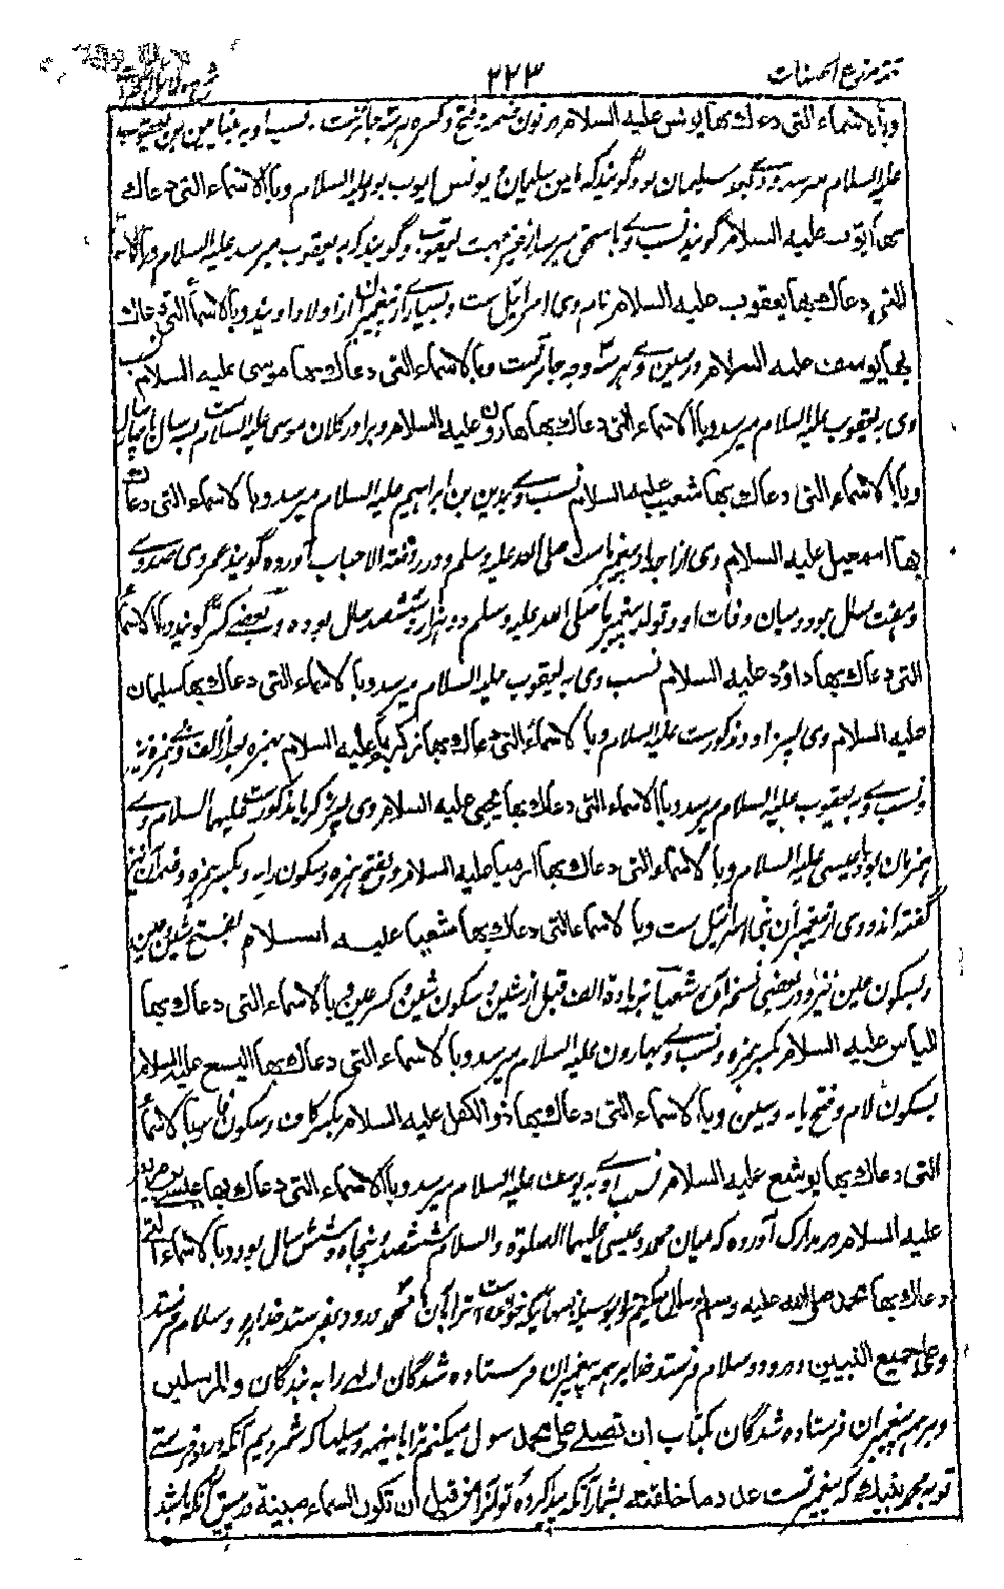 مزرع الحسنات
۲۲۳
وبالاسماء التی دعاك بها یونس علیه السلام در نون ضمه و فتح و کسره هر سه جائزست نسب او به بنیامین بن یعقوب
علیه السلام میرسد سلیمان بود و گویند که یونس ایوب بود علیه السلام وبالاسماء التی دعاك
بها ایوب علیه السلام گویند نسب وی میرسد و گویند که به یعقوب میرسد علیه السلام
التی دعاك بها یعقوب علیه السلام نام وی اسرائیل ست و بسیاری از پیغمبران از اولاد اویند وبالاسماء التی دعاك
بها یوسف علیه السلام در سین وی هر سه وجه جائزست وبالاسماء التی دعاك بها موسی علیه السلام نسب
وی به یعقوب علیه السلام میرسد وبالاسماء التی دعاك بها هارون علیه السلام برادر کلان موسی علیه السلام ست بسه سال
وبالاسماء التی دعاك بها شعیب علیه السلام نسب وی بمدین بن ابراهیم علیه السلام میرسد وبالاسماء التی دعاك
بها اسمعیل علیه السلام وی از اجداد پیغمبر ماست صلی الله علیه وسلم و در روضة الاحباب آورده گویند عمر وی صد و سی
و هفت سال بود و میان وفات او و تولد پیغمبر ما صلی الله علیه وسلم دو هزار و ششصد سال بوده و بعضی کمتر گویند وبالاسماء
التی دعاك بها داؤد علیه السلام نسب وی به یعقوب علیه السلام میرسد وبالاسماء التی دعاك بها سلیمان
علیه السلام وی پسر داود مذکورست علیه السلام وبالاسماء التی دعاك بها زکریا علیه السلام بهمزه بعد الف و بی همزه نیز
و نسب وی به یعقوب علیه السلام میرسد وبالاسماء التی دعاك بها یحیی علیه السلام وی پسر زکریا مذکورست علیهما السلام وی
همزمان بود با عیسی علیه السلام وبالاسماء التی دعاك بها ارمیا علیه السلام و بفتح همزه و سکون راء و بکسر همزه و ضم آن نیز
گفته اند و وی از پیغمبران بنی اسرائیل ست وبالاسماء التی دعاك بها شعیا علیه السلام بفتح شین و عین
و بسکون عین نیز و در بعضی نسخه اشعیا بزیادة الف قبل از شین و سکون شین و کسر عین وبالاسماء التی دعاك بها
الیاس علیه السلام بکسر همزه و نسب وی بهارون علیه السلام میرسد وبالاسماء التی دعاك بها الیسع علیه السلام
بسکون لام و فتح یاء و سین وبالاسماء التی دعاك بها ذو الکفل علیه السلام بکسر کاف و سکون فا وبالاسماء
التی دعاك بها یوشع علیه السلام نسب او به یوسف علیه السلام میرسد وبالاسماء التی دعاك بها عیسی بن مریم
علیه السلام در مدارک آورده که میان محمد و عیسی علیهما الصلوة والسلام ششصد و پنجاه و شش سال بود وبالاسماء التی
دعاك بها محمد صلی الله علیه وسلم درود بفرستد خدا بر و سلام فرستد
وعلی جمیع النبیین و درود و سلام فرستد خدا بر همه پیغمبران فرستاده شدگان الهی را به بندگان والمرسلین
و بر همه پیغمبران فرستاده شدگان بکتاب ان تصلی علی محمد سوال میکنم ترا باینهمه وسیلها که شمردیم آنکه درود فرستی
تو به محمد نبیك که پیغمبر تست عدد ما خلقته بشمار آنکه پیدا کرده تو آنرا من قبل ان تکون السماء مبنیة در پیش آنکه باشد